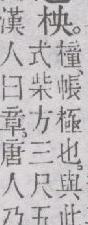 柍。橦、帳極也。與此
式柴方三尺五
漢人曰章。唐人乃